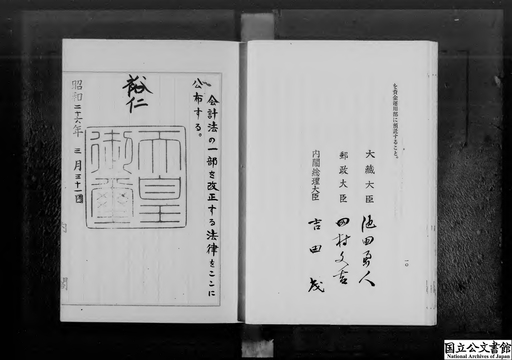 を資金運用部に預託すること。
大蔵大臣 池田勇人
郵政大臣 田村文吉
内閣総理大臣 吉田茂
一〇
会計法の一部を改正する法律をここに
公布する。
裕仁
天皇
御璽
昭和二十六年三月三十一日
内閣
国立公文書館
National Archives of Japan